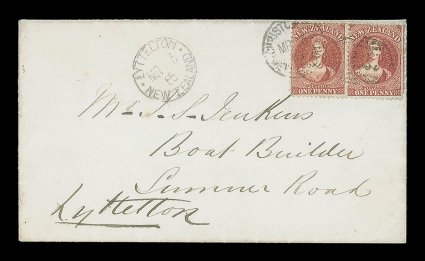 LYTTELTON
NEW ZEALAND
NEW ZEALAND
NEW ZEALAND
ONE PENNY
ONE PENNY
Mr. S. S. Jenkins
Boat Builder
Sumner Road
Lyttelton